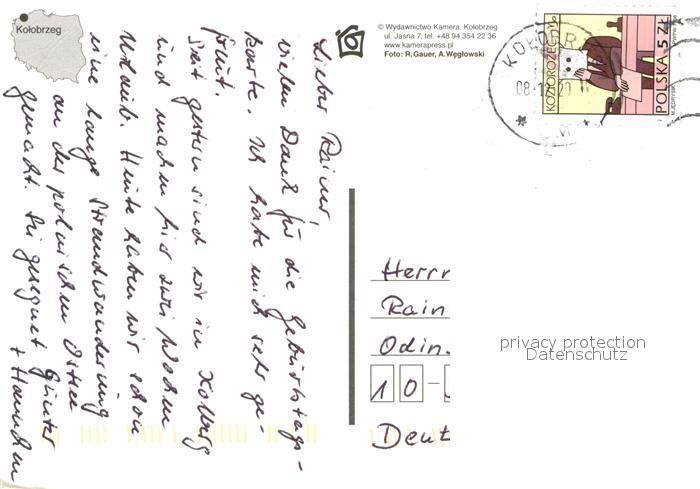 Kołobrzeg
© Wydawnictwo Kamera, Kołobrzeg
ul. Jasna 7, tel. +48 94 354 22 36
www.kamerapress.pl
Foto: R.Gauer, A.Węgłowski
Lieber Rainer,
vielen Dank für die Geburtstags-
karte. Ich habe mich sehr ge-
freut.
Seit gestern sind wir in Kolberg
und machen hier zwei Wochen
Urlaub. Heute haben wir schon
eine lange Strandwanderung
an der polnischen Ostsee
gemacht. Sei gesegnet Günter
+ Hannchen
KOZIOROŻEC
POLSKA 5 ZŁ
KOŁOBR
08.1
Herrn
Rain
Odin.
10-
Deut
privacy protection
Datenschutz